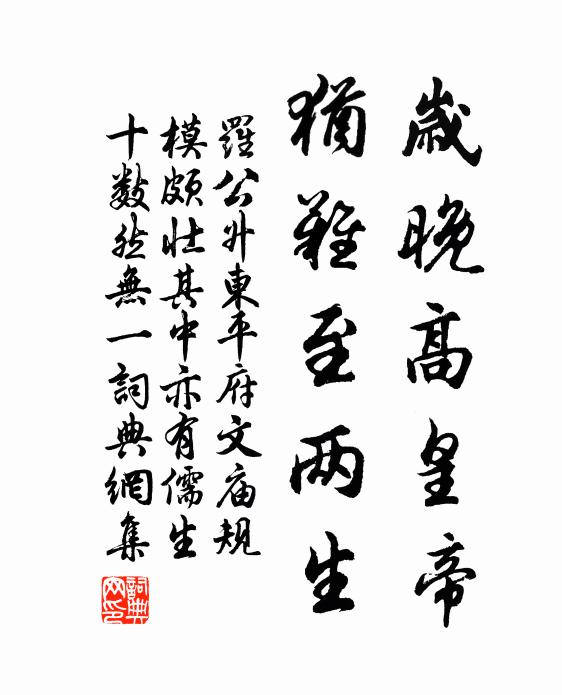 歲晚高皇帝
猶難至兩生
羅公升東平府文庙規
模頗壯其中亦有儒生
十數然無一詞典網集
詞典网印